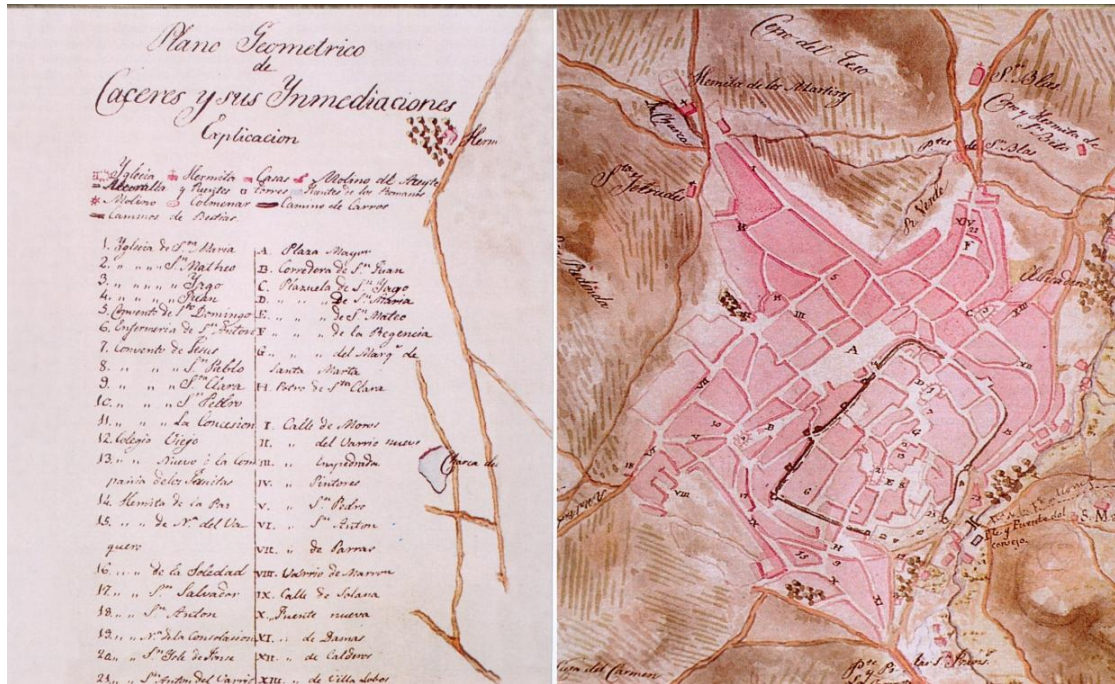 Plano Geometrico
de
Caçeres y sus Inmediaciones
Explicacion
Yglecia Hermita Casas Molino del Aceyte
Muralla y Fuentes Torres Puentes de los Romanos
Molino Colmenar Camino de Carros
Caminos de Bestias
1. Yglecia de Sta Maria
2. " " " Sn Matheo
3. " " " " Yago
4. " " " " Juan
5. Convento de Sto Domingo
6. Enfermeria de Sn Anton
7. Convento de Jesus
8. " " " Sn Pablo
9. " " " Sta Clara
10. " " " Sn Pedro
11. " " " La Concesion
12. Colegio Viejo
13. " " Nuevo ò la Com
pania de los Jesuitas
14. Hermita de la Paz
15. " " de Na del Va
quero
16. " " de la Soledad
17. " " Sn Salvador
18. " " Sn Anton
19. " " Na de la Consolasion
20. " " Sn Jose de
21. " " Sn Anton del Varrio
A. Plaza Mayor
B. Corredera de Sn Juan
C. Plazuela de Sn Yago
D. " " de Sta Maria
E. " " de Sn Mateo
F. " " de la Regencia
G. " " del Marqs de
Santa Marta
H. Potro de Sta Clara
I. Calle de Moros
II. " del Varrio nuevo
III. " Empedrada
IV. " Pintores
V. " Sn Pedro
VI. " Sn Anton
VII. " de Parras
VIII. Varrio de
IX. Calle de Solana
X. Fuente nueva
XI. " de Damas
XII. " de Calderos
XIII. " de Villa Lobos
Herm
Charca de
Cerro del Teso
Hermita de los Martires
Sn Blas
Cerro y Hermita de
Sn Benito
Sn Blas
Charca
Sta Jetrudis
R. Verde
Redonda
A
B
C
D
E
F
G
H
Fte y Puente del
consejo
S. M
del Carmen